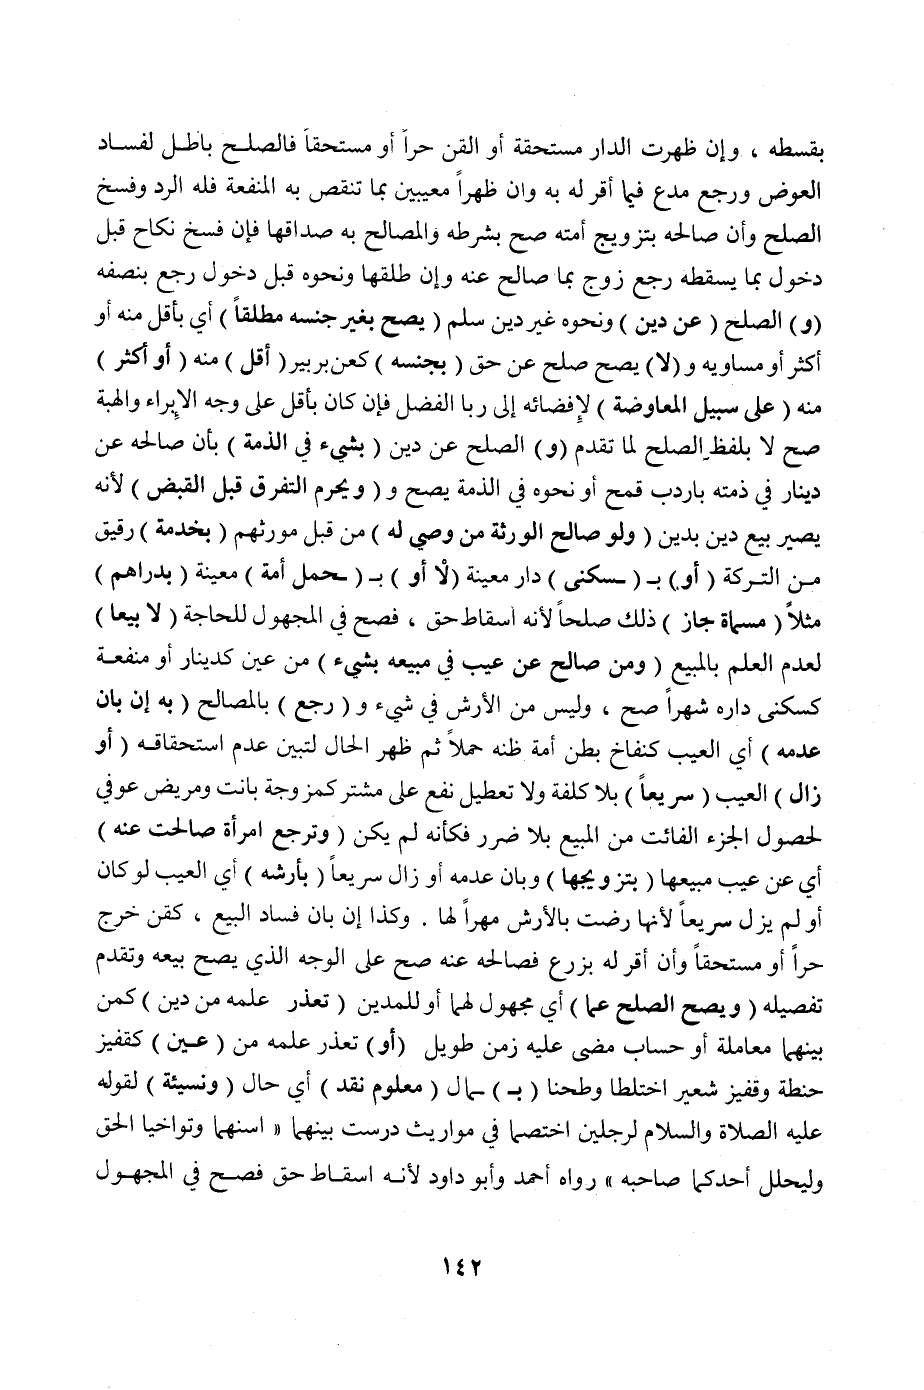 بقسطه ، وإن ظهرت الدار مستحقة أو القن حراً أو مستحقاً فالصلح باطل لفساد
العوض ورجع مدع فيما أقر له به وان ظهراً معيبين بما تنقص به المنفعة فله الرد وفسخ
الصلح وأن صالحه بتزويج أمته صح بشرطه والمصالح به صداقها فإن فسخ نكاح قبل
دخول بما يسقطه رجع زوج بما صالح عنه وإن طلقها ونحوه قبل دخول رجع بنصفه
(و) الصلح ( عن دين ) ونحوه غير دين سلم ( يصح بغير جنسه مطلقاً ) أي بأقل منه أو
أكثر أو مساويه و (لا) يصح صلح عن حق ( بجنسه ) كعن بر ببر ( أقل ) منه ( أو أكثر )
منه ( على سبيل المعاوضة ) لإفضائه إلى ربا الفضل فإن كان بأقل على وجه الإبراء والهبة
صح لا بلفظ الصلح لما تقدم (و) الصلح عن دين ( بشيء في الذمة ) بأن صالحه عن
دينار في ذمته باردب قمح أو نحوه في الذمة يصح و ( ويحرم التفرق قبل القبض ) لأنه
يصير بيع دين بدين ( ولو صالح الورثة من وصي له ) من قبل مورثهم ( بخدمة ) رقيق
من التركة ( أو) بـ ( ـسكنى ) دار معينة (لا أو ) بـ ( ـحمل أمة ) معينة ( بدراهم )
مثلاً ( مسماة جاز ) ذلك صلحاً لأنه اسقاط حق ، فصح في المجهول للحاجة ( لا بيعا )
لعدم العلم بالمبيع ( ومن صالح عن عيب في مبيعه بشيء ) من عين كدينار أو منفعة
كسكنى داره شهراً صح ، وليس من الأرش في شيء و ( رجع ) بالمصالح ( به إن بان
عدمه ) أي العيب كنفاخ بطن أمة ظنه حملاً ثم ظهر الحال لتبين عدم استحقاقه ( أو
زال ) العيب ( سريعاً ) بلا كلفة ولا تعطيل نفع على مشتر كمزوجة بانت ومريض عوفي
لحصول الجزء الفائت من المبيع بلا ضرر فكأنه لم يكن ( وترجع امرأة صالحت عنه )
أي عن عيب مبيعها ( بتزويجها ) وبان عدمه أو زال سريعاً ( بأرشه ) أي العيب لو كان
أو لم يزل سريعاً لأنها رضت بالأرش مهراً لها . وكذا إن بان فساد البيع ، كقن خرج
حراً أو مستحقاً وأن أقر له بزرع فصالحه عنه صح على الوجه الذي يصح بيعه وتقدم
تفصيله ( ويصح الصلح عما ) أي مجهول لهما أو للمدين ( تعذر علمه من دين ) كمن
بينهما معاملة أو حساب مضى عليه زمن طويل (أو) تعذر علمه من ( عين ) كقفيز
حنطة وقفيز شعير اختلطا وطحنا ( بـ ) ـمال ( معلوم نقد ) أي حال ( ونسيئة ) لقوله
عليه الصلاة والسلام لرجلين اختصما في مواريث درست بينهما « اسنهما وتواخيا الحق
وليحلل أحدكما صاحبه » رواه أحمد وأبو داود لأنه اسقاط حق فصح في المجهول
١٤٢